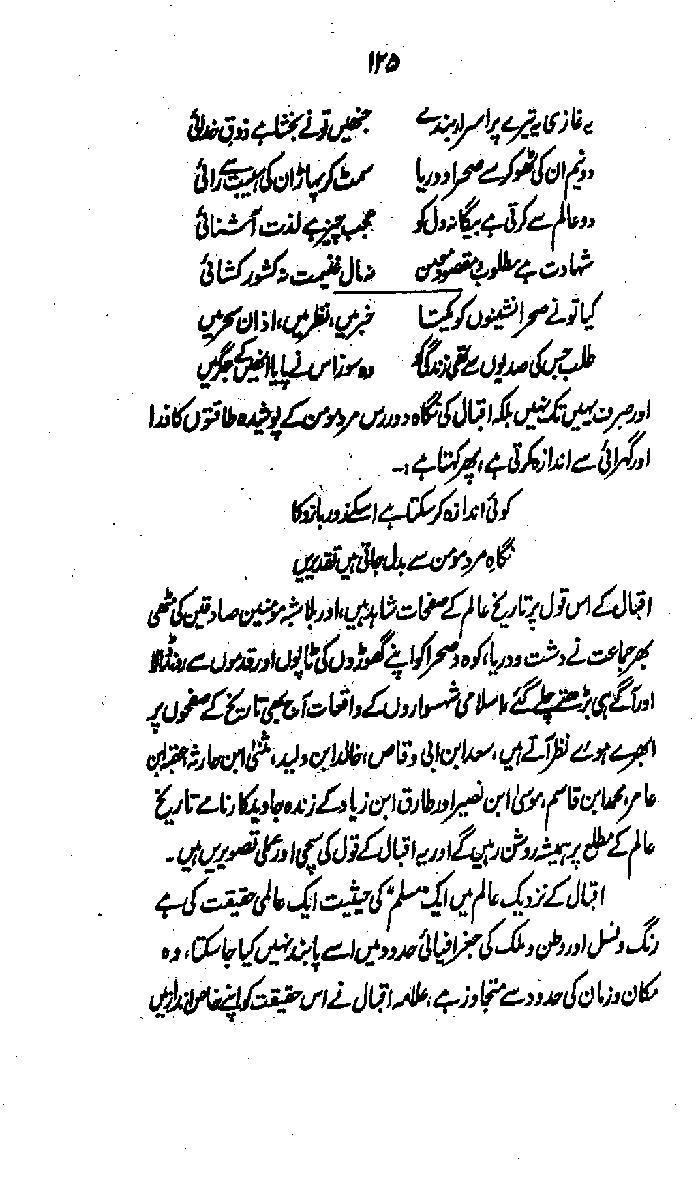 ۱۲۵
یہ غازی یہ تیرے پر اسرار بندے جنھیں تو نے بخشا ہے ذوق خدائی
دو نیم ان کی ٹھوکر سے صحرا و دریا سمٹ کر پہاڑ ان کی ہیبت سے رائی
دو عالم سے کرتی ہے بیگانہ دل کو عجب چیز ہے لذت آشنائی
شہادت ہے مطلوب و مقصود مومن نہ مال غنیمت نہ کشور کشائی
کیا تو نے صحرا نشینوں کو یکتا خبر میں، نظر میں، اذان سحر میں
طلب جس کی صدیوں سے تھی زندگی کو وہ سوز اس نے پایا انھیں کے جگر میں
اور صرف یہیں تک نہیں بلکہ اقبال کی نگاہ دور رس مرد مومن کے پوشیدہ طاقتوں کا ذرا
اور گہرائی سے اندازہ کرتی ہے، پھر کہتا ہے :۔
کوئی اندازہ کر سکتا ہے اسکے زور بازو کا
نگاہِ مرد مومن سے بدل جاتی ہیں تقدیریں
اقبال کے اس قول پر تاریخ عالم کے صفحات شاہد ہیں، اور بلا شبہ مومنین صادقین کی مٹھی
بھر جماعت نے دشت و دریا، کوہ و صحرا کو اپنے گھوڑوں کی ٹاپوں اور قدموں سے روند ڈالا
اور آگے ہی بڑھتے چلے گئے، اسلامی شہسواروں کے واقعات آج بھی تاریخ کے صفحوں پر
ابھرے ہوئے نظر آتے ہیں، سعد ابن ابی وقاص، خالد ابن ولید، مثنیٰ ابن حارثہ عقبہ ابن
عامر، محمد ابن قاسم، موسیٰ ابن نصیر اور طارق ابن زیاد کے زندہ جاوید کارنامے تاریخ
عالم کے مطلع پر ہمیشہ روشن رہیں گے اور یہ اقبال کے قول کی سچی اور عملی تصویریں ہیں۔
اقبال کے نزدیک عالم میں ایک "مسلم" کی حیثیت ایک عالمی حقیقت کی ہے
رنگ و نسل اور وطن و ملک کی جغرافیائی حدود میں اسے پابند نہیں کیا جا سکتا، وہ
مکان و زمان کی حدود سے متجاوز ہے، علامہ اقبال نے اس حقیقت کو اپنے خاص انداز میں